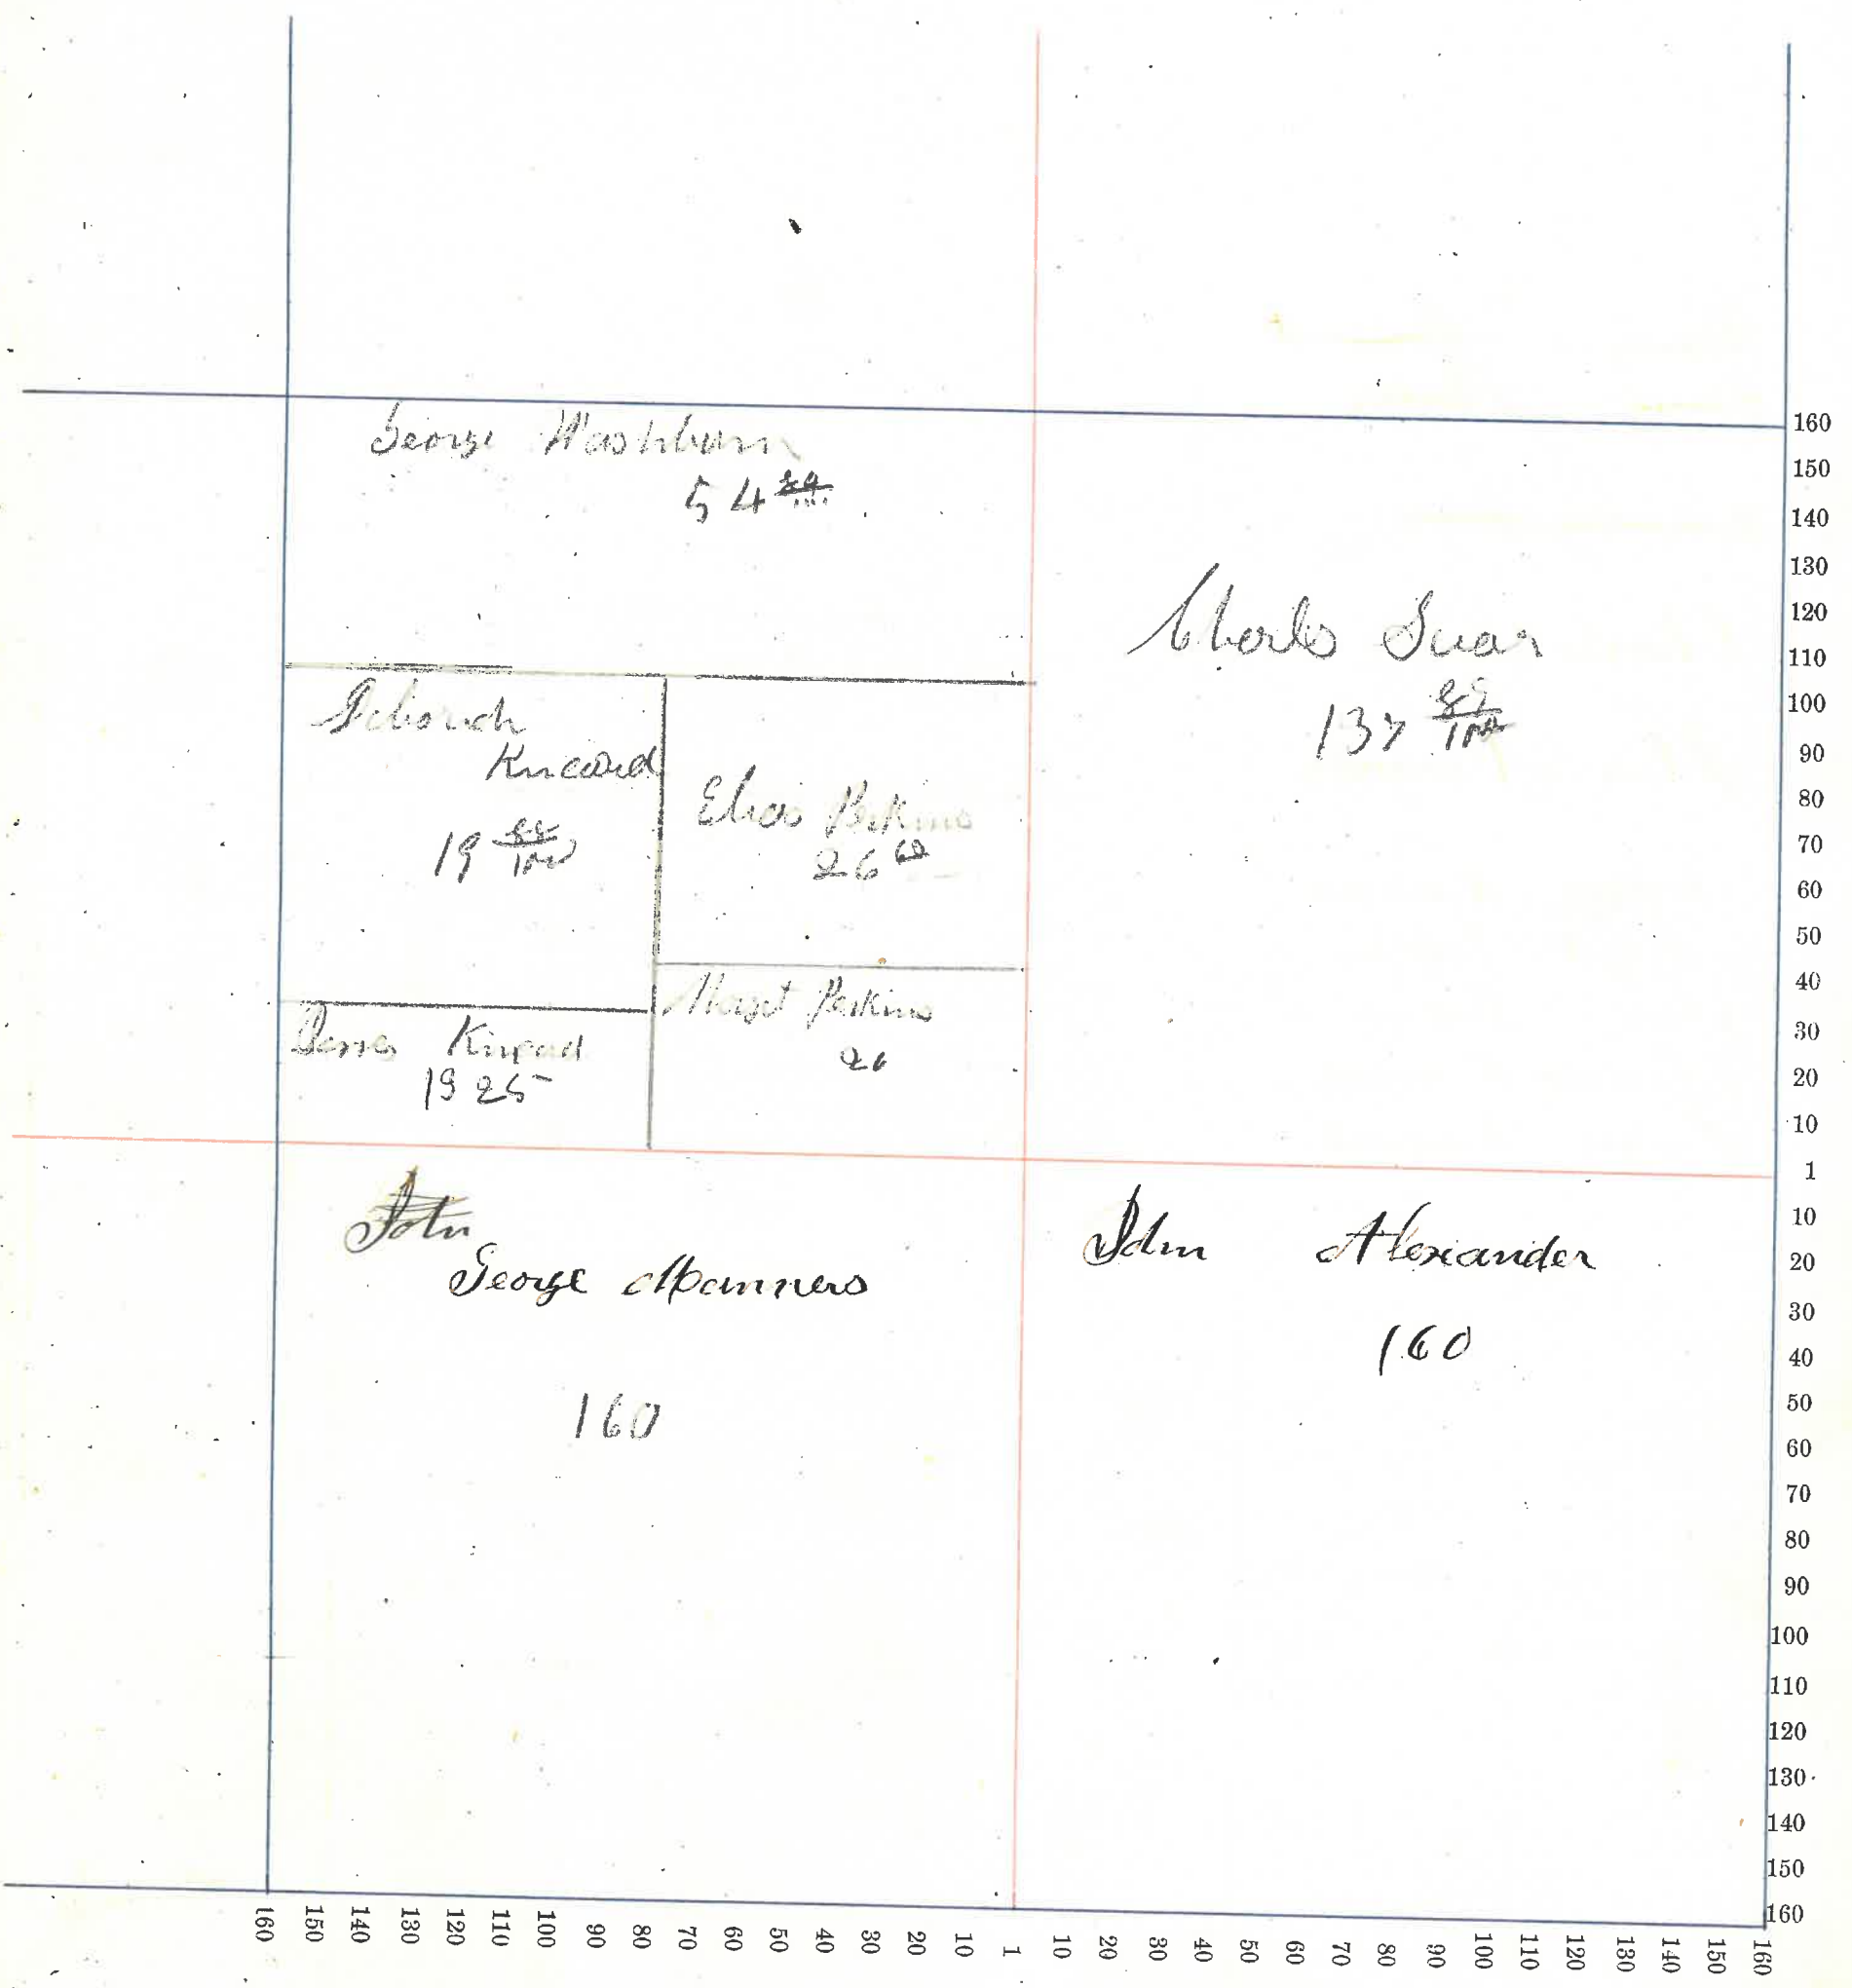 George Washburn
54 89/100
Charles
137 89/100
Deborah
Kincaid
19 88/100
Elias Perkins
26 60
Perkins
26
Kincaid
19 25
John
George Manners
160
John Alexander
160
160
150
140
130
120
110
100
90
80
70
60
50
40
30
20
10
1
10
20
30
40
50
60
70
80
90
100
110
120
130
140
150
160
160 150 140 130 120 110 100 90 80 70 60 50 40 30 20 10 1 10 20 30 40 50 60 70 80 90 100 110 120 130 140 150 160